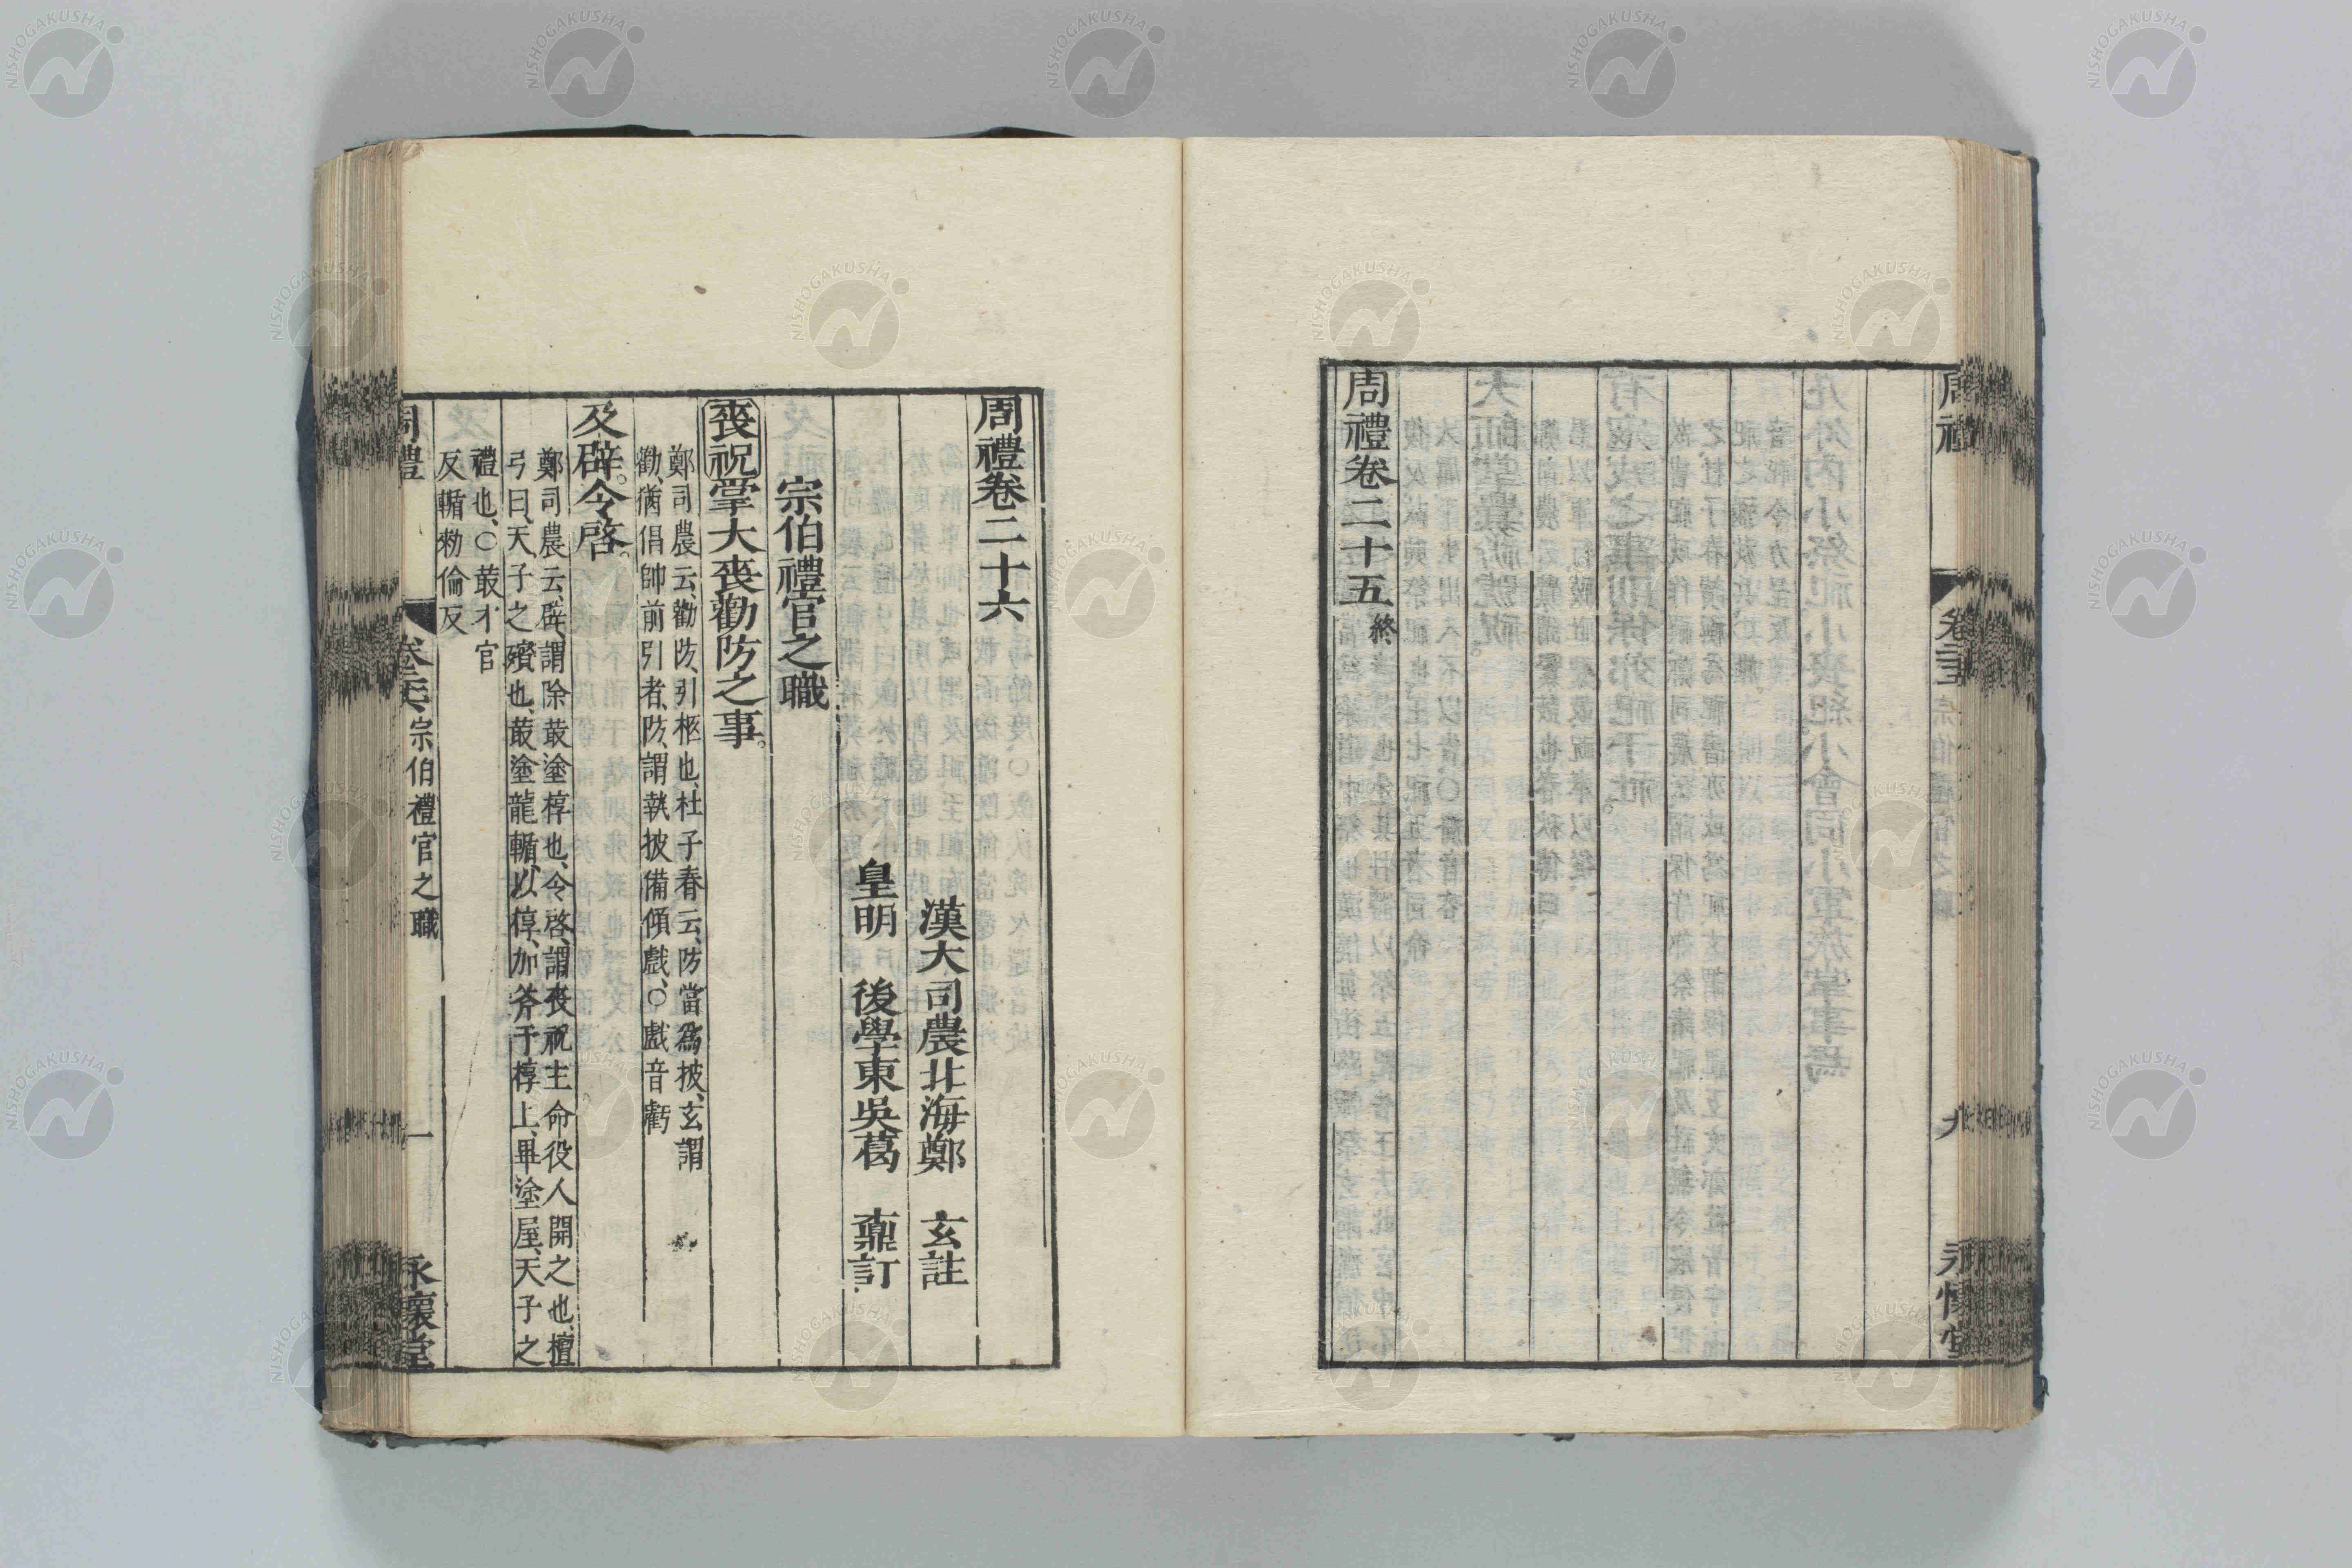 周禮
卷二十五
九
永懷堂
周禮卷二十五終
周禮卷二十六
漢大司農北海鄭玄註
皇明後學東吳葛鼒訂
宗伯禮官之職
喪祝掌大喪勸防之事。
鄭司農云、勸防、引柩也、杜子春云、防當爲披、玄謂
勸、猶倡帥前引者、防、謂執披備傾戲、○戲音虧
及辟。令啓。
鄭司農云、辟、謂除菆塗椁也、令啓、謂喪祝主命役人開之也、檀
弓曰、天子之殯也、菆塗龍輴、以椁、加斧于椁上、畢塗屋、天子之
禮也、○菆才官
反輴勑倫反
周禮
卷二十六
宗伯禮官之職
一
永懷堂
NISHOGAKUSHA